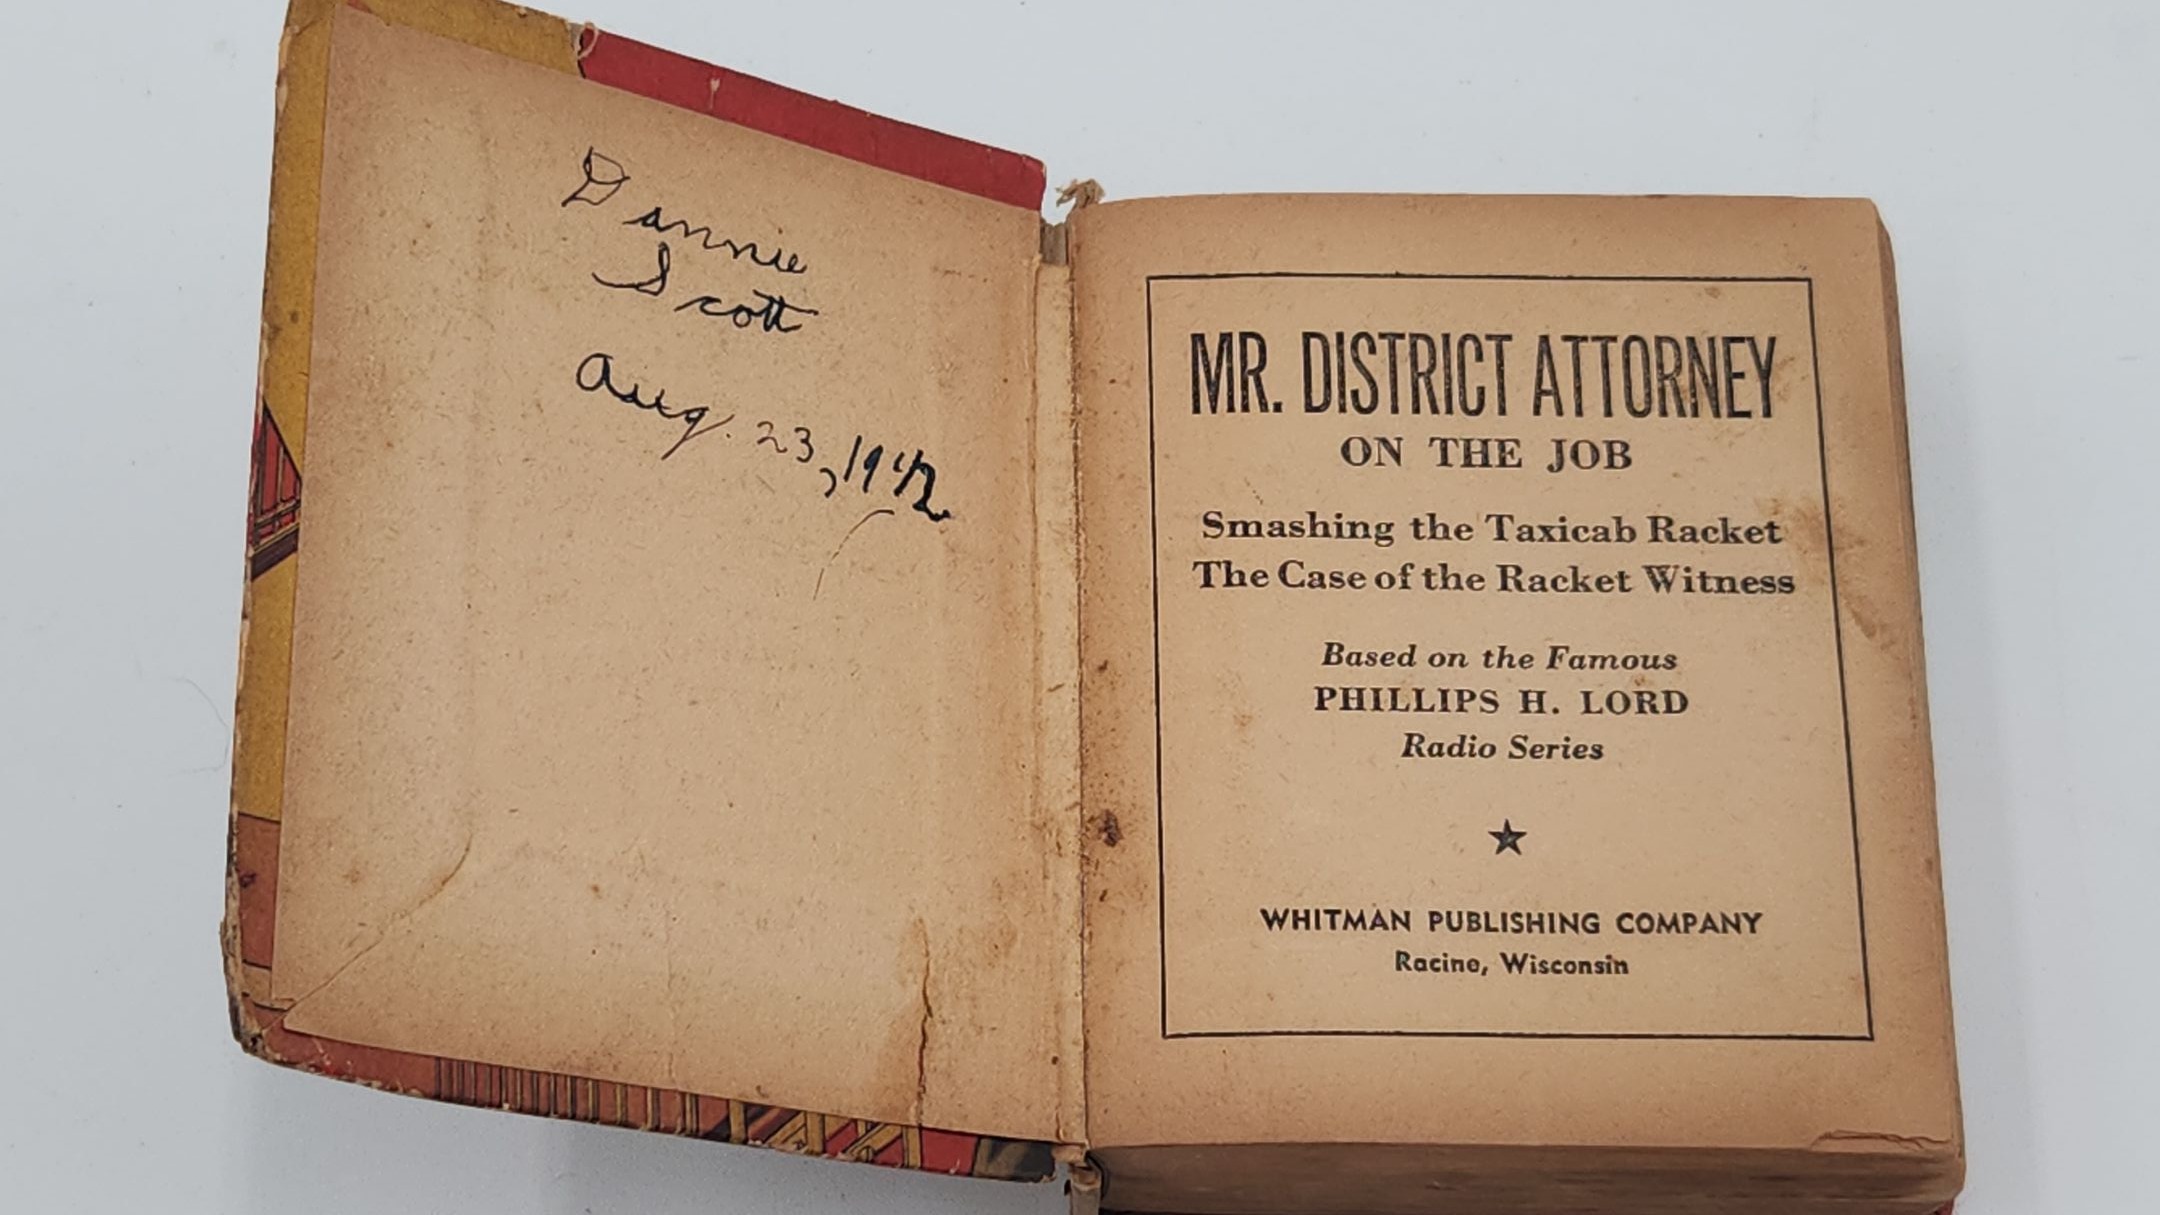 Dannie
Scott
Aug. 23, 1942
MR. DISTRICT ATTORNEY
ON THE JOB
Smashing the Taxicab Racket
The Case of the Racket Witness
Based on the Famous
PHILLIPS H. LORD
Radio Series
WHITMAN PUBLISHING COMPANY
Racine, Wisconsin